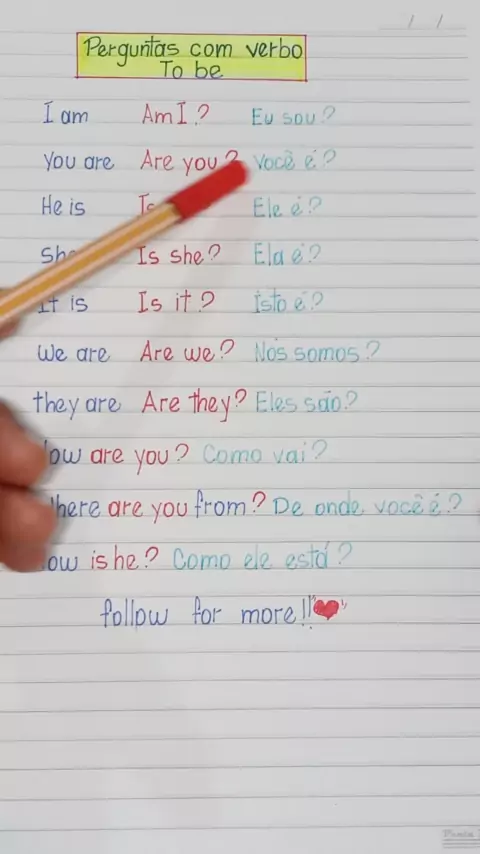 Perguntas com verbo
To be
I am Am I? Eu sou?
You are Are you? Você é?
He is Is Ele é?
Is she? Ela é?
It is Is it? Isto é?
We are Are we? Nós somos?
they are Are they? Eles são?
ow are you? Como vai?
here are you from? De onde você é?
ow is he? Como ele está?
follow for more!!